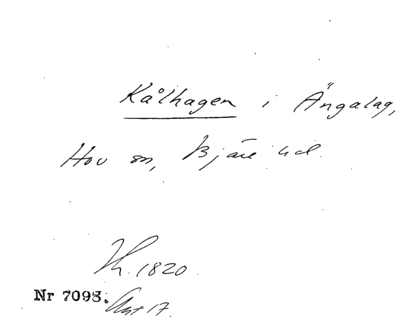 Kålhagen i Ängalag,
Hov sn, Bjäre hd.
1820.
Nr 7098. 17.